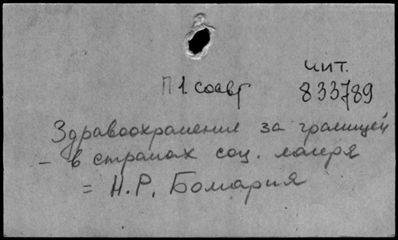 чит.
П 1 соавт
833789
Здравоохранение за границей
– в странах соц. лагеря
= Н.Р. Болгария